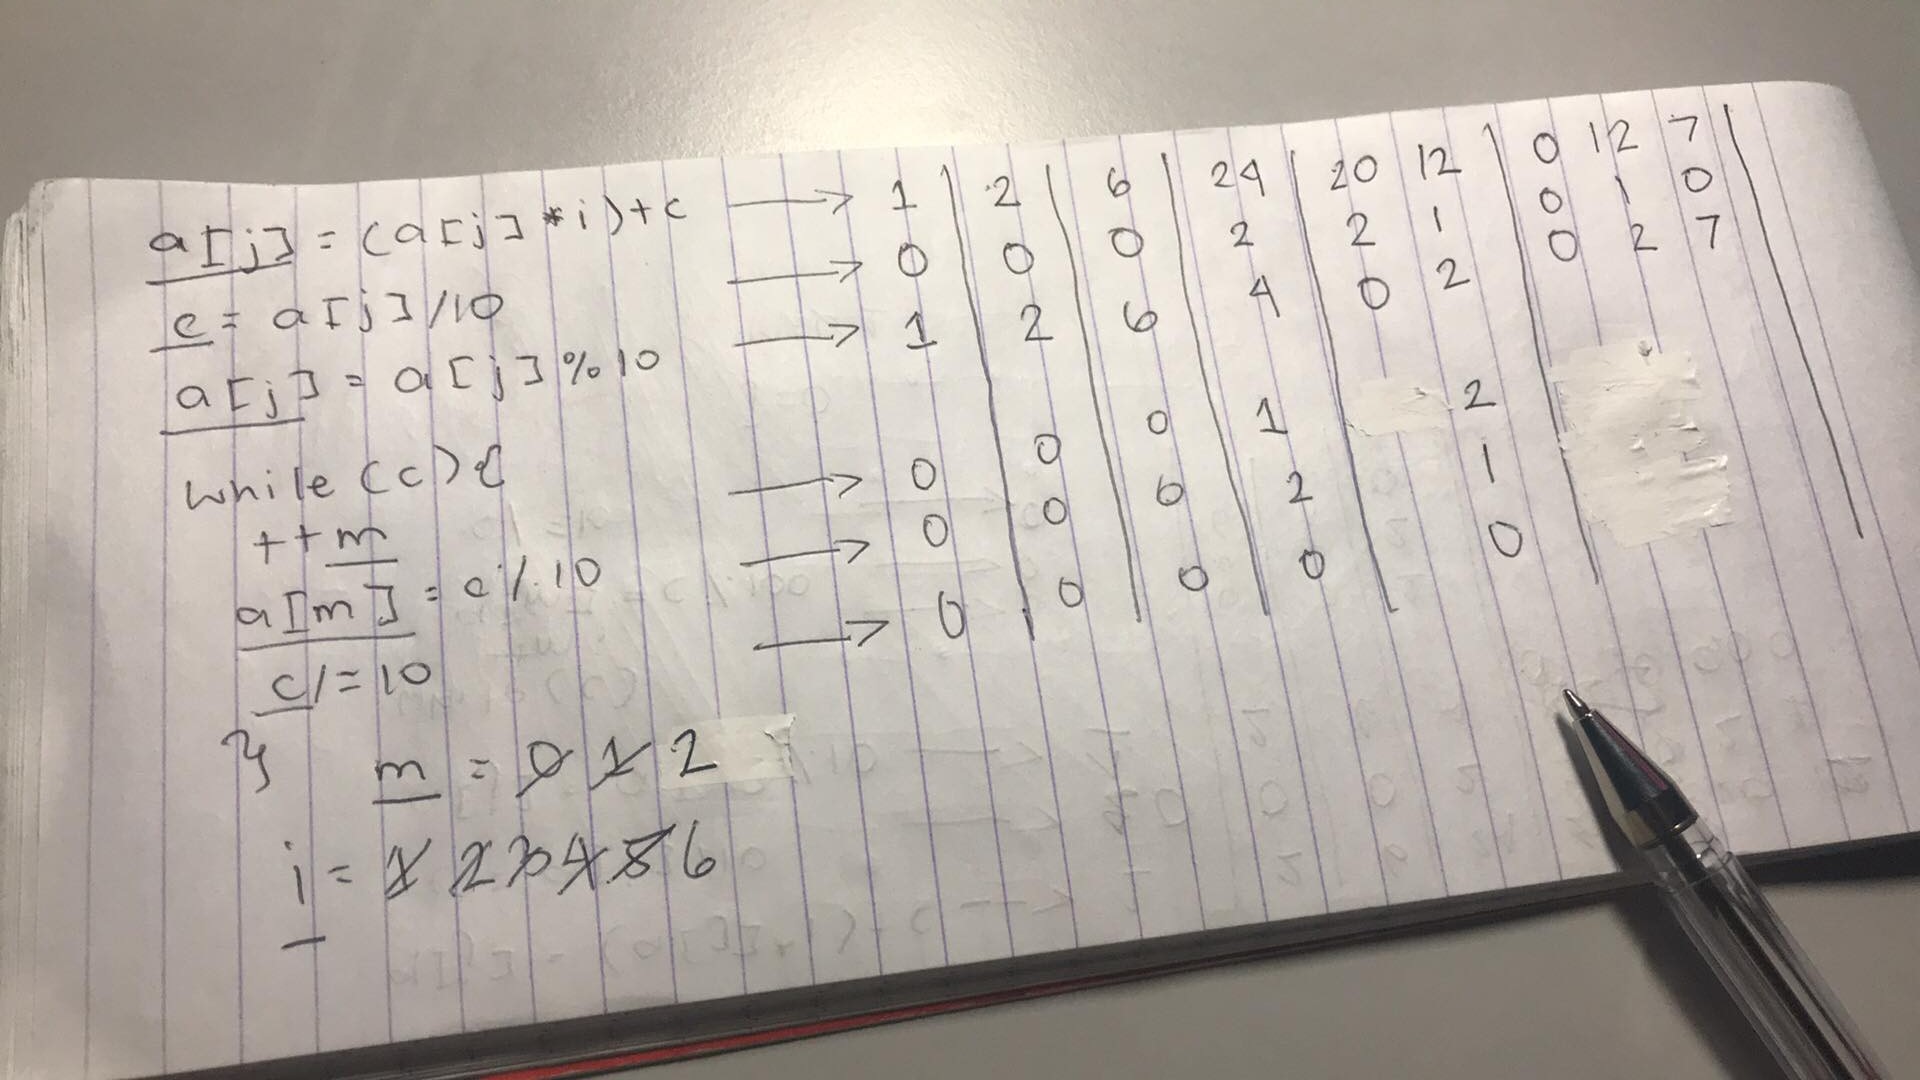 a[j] = (a[j] * i) + c → 1 2 6 24 20 12 0 12 7
c = a[j] /10 → 0 0 0 2 2 1 0 1 0
a[j] = a[j] % 10 → 1 2 6 4 0 2 0 2 7
while (c) {
++m → 0 0 0 1 2
a[m] = c % 10 → 0 0 0 2 1
c /= 10 → 0 0 0 0 0
}
m = 0 1 2
i = 1 2 3 4 5 6